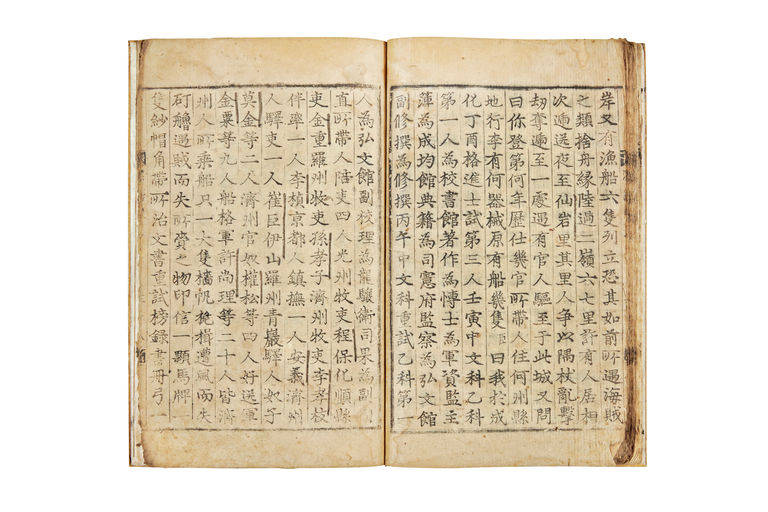 岸又有漁船六隻列立恐其如前所遇海賊
之類捨舟緣陸過二嶺六七里許有人居相
次遞送夜至仙岩里其里人爭以隅杖亂擊
刼奪遍至一處遇有官人驅至于此城又問
曰你登第何年歷仕幾官所帶人住何州縣
地行李有何器械原有船幾隻臣曰我於成
化丁酉格進士試第三人壬寅中文科乙科
第一人為校書館著作為博士為軍資監主
簿為成均館典籍為司憲府監察為弘文館
副修撰為修撰丙午中文科重試乙科第一
人為弘文館副校理為龍驤衛司果為副
直所帶人陪吏四人光州牧吏程保化順縣
吏金重羅州牧吏孫孝子濟州牧吏李孝枝
伴率一人李楨京都人鎮撫一人安義濟州
人驛吏一人崔巨伊山羅州青巖驛人奴子
莫金等二人濟州官奴權松等四人好送軍
金粟等九人船格軍許尚理等二十人皆濟
州人所乘船只一大隻檣帆桅楫遭風而失
矴艣遇賊而失所賫之物印信一顆馬牌
隻紗帽角帶所治文書重試榜錄書冊弓一